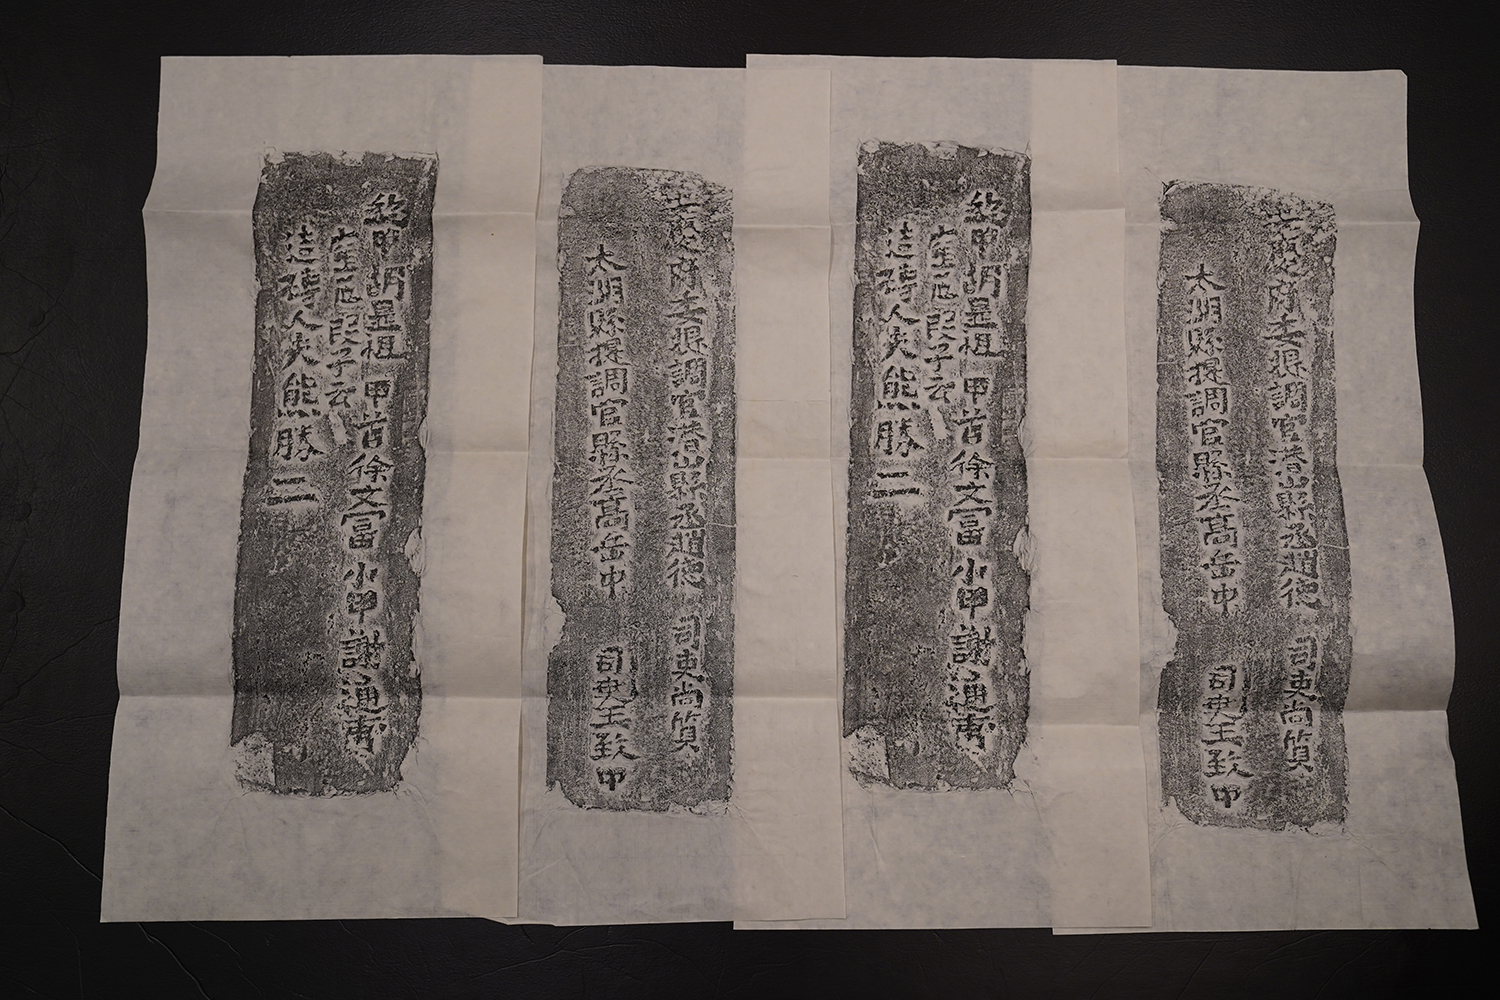 安慶府委提調官潜山縣丞趙德 司吏尚質
太湖縣提調官縣丞高岳中 司吏王致中
総甲胡显祖 甲首徐文冨 小甲謝通甫
窑匠段子云
造磚人夫熊勝二
安慶府委提調官潜山縣丞趙德 司吏尚質
太湖縣提調官縣丞高岳中 司吏王致中
総甲胡显祖 甲首徐文冨 小甲謝通甫
窑匠段子云
造磚人夫熊勝二